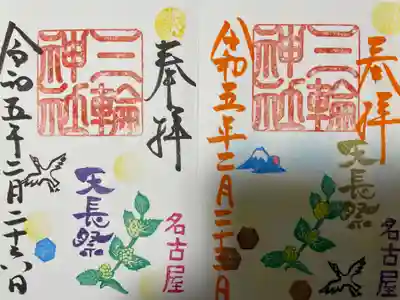 奉拝
三輪神社
天長祭
名古屋
令和五年二月二十三日
奉拝
三輪神社
天長祭
名古屋
令和五年二月二十三日